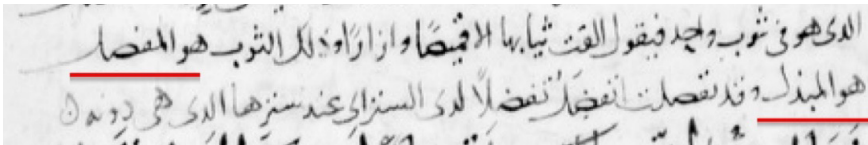 الذى هو فى ثوب واحد فيقول القت ثيابها الا قميصًا وازارًا وذلك الثوب هو المفضل
هو المبذل وقد تفضلت اتفضل تفضلًا لدى الستراى عند سترها الذى هى دونه